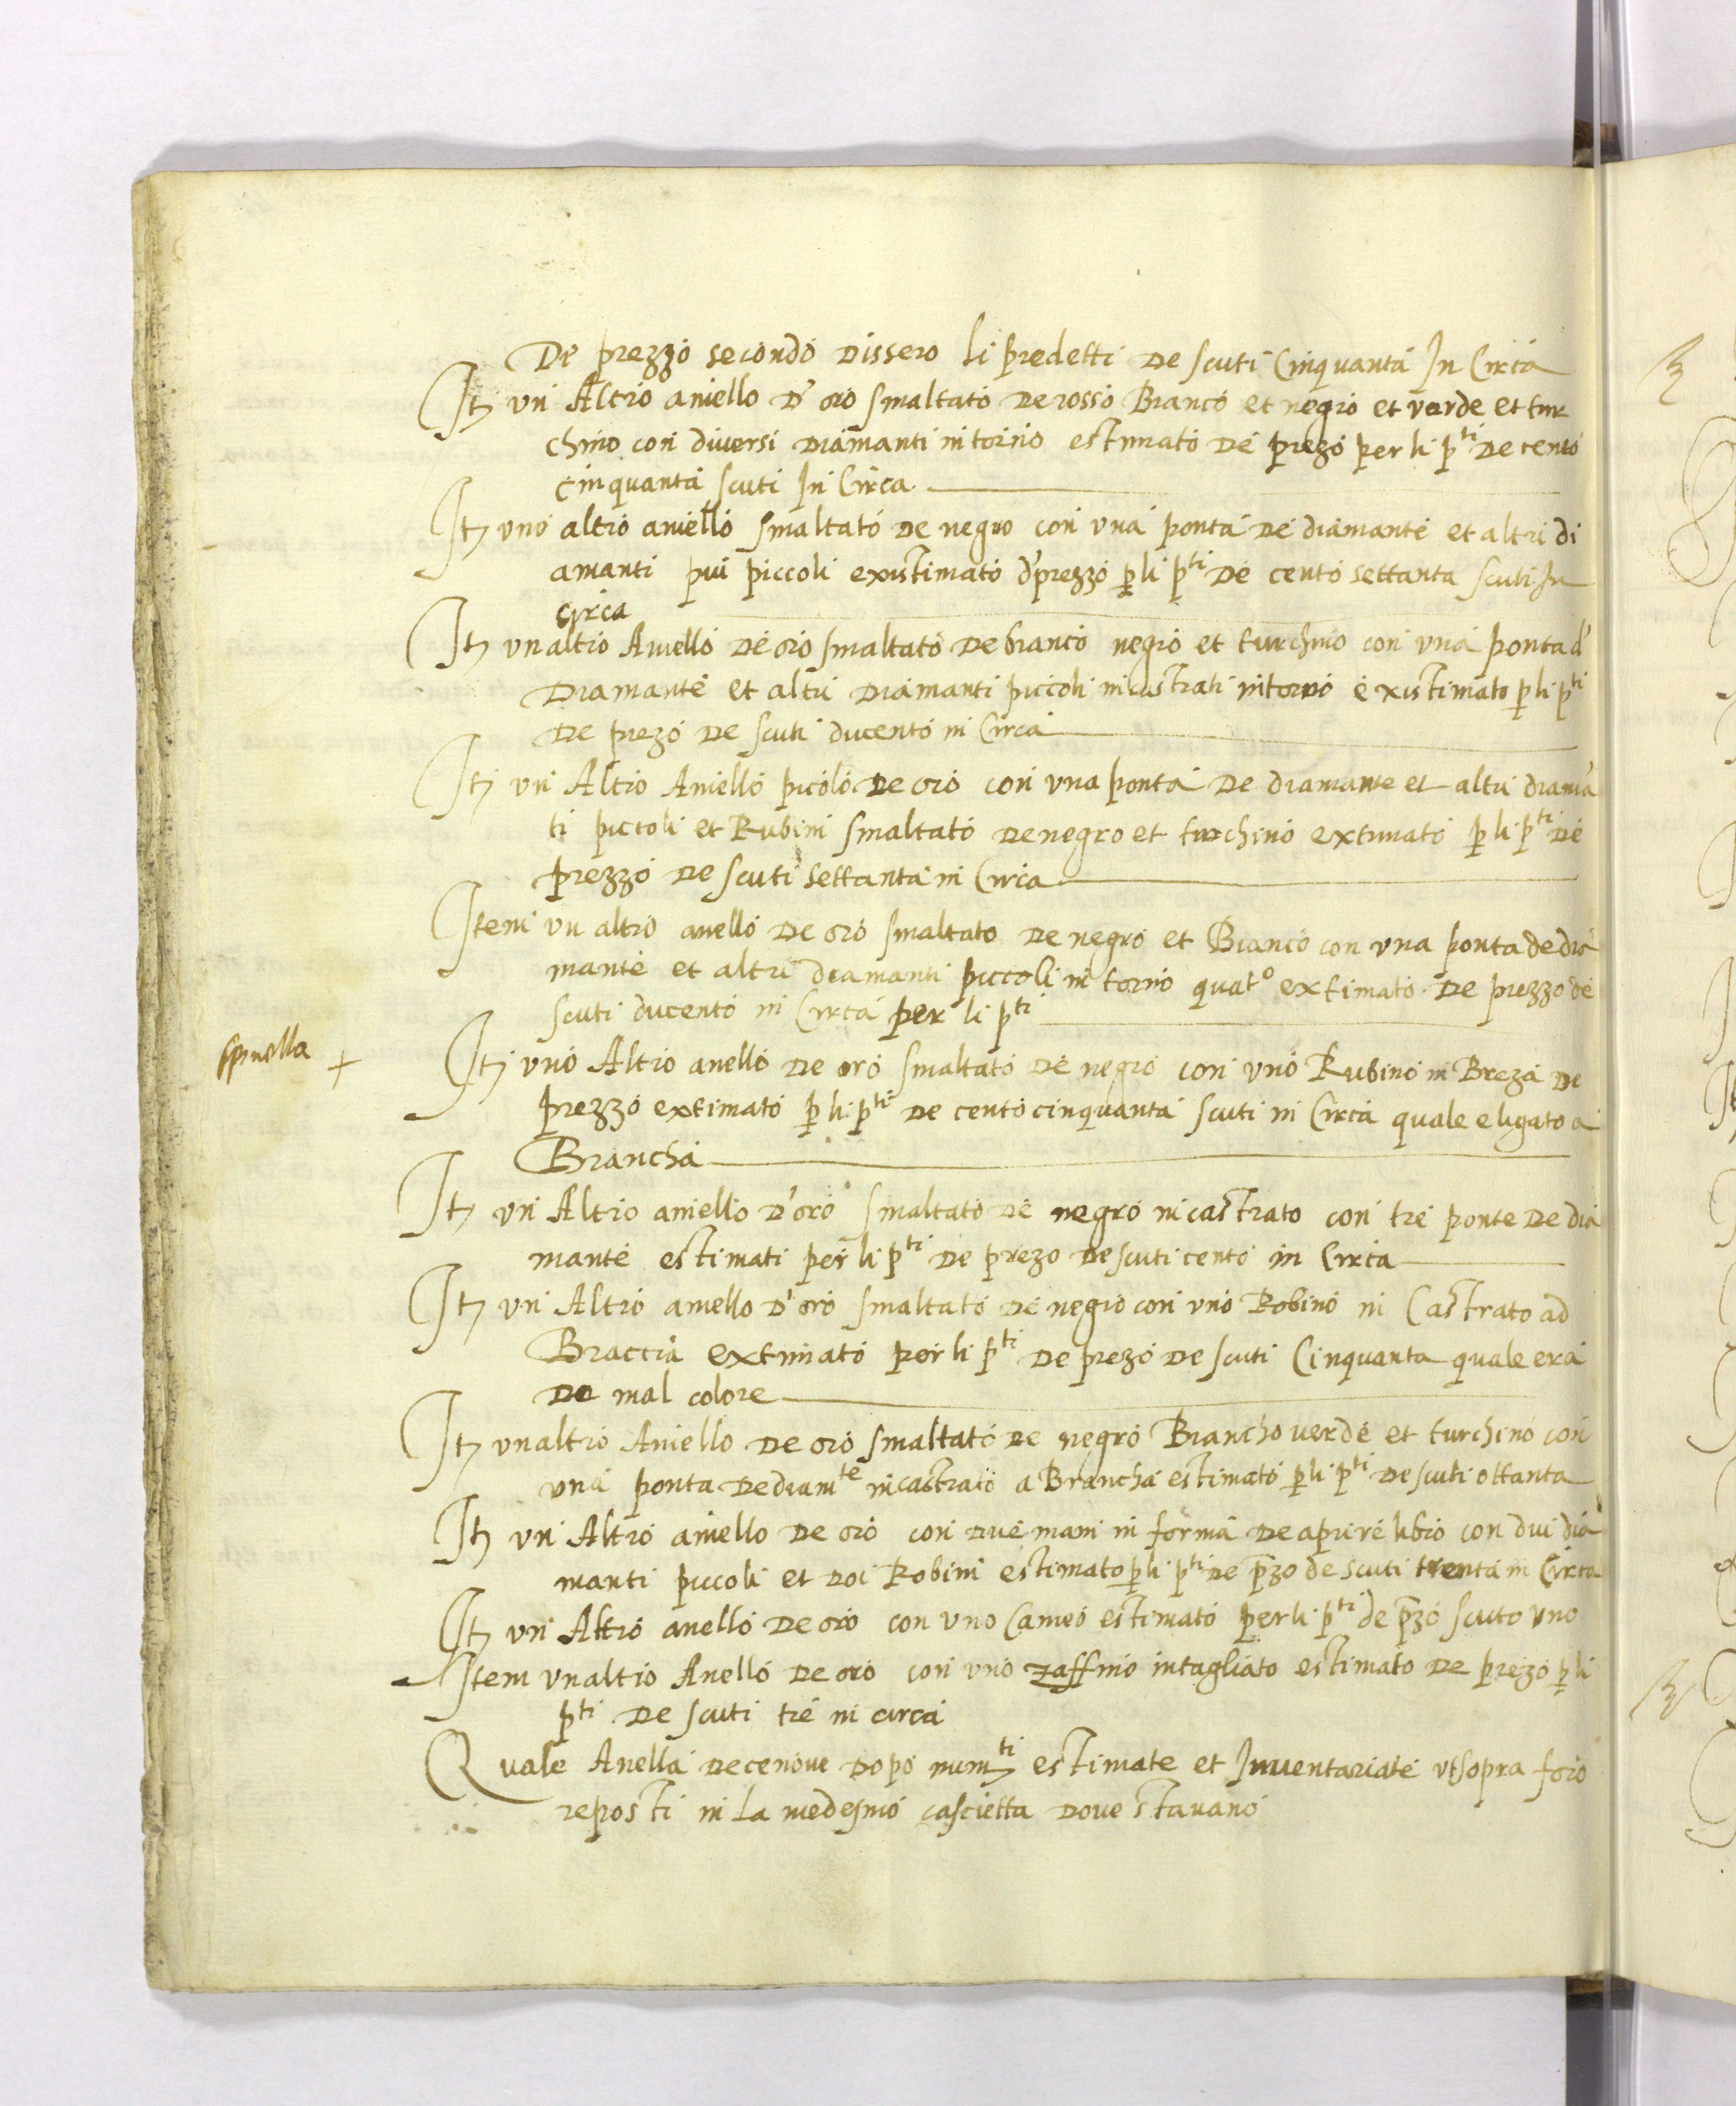 De prezzo secondo dissero li predetti de scuti Cinquanta In Circa
It3 un Altro aniello d' oro smaltato de rosso Bianco et negro et verde et tur
chino con diversi diamanti intorno estimato de prezo per li p^ti de cento
cinquanta scuti In Circa
It3 uno altro aniello smaltato de negro con una ponta de diamante et altri di
amanti piui piccoli existimato d' prezzo p li p^ti de cento settanta scuti In
circa
It3 un altro Aniello de oro smaltato de bianco negro et turchino con una ponta d'
Diamante et altri diamanti piccoli incastrati intorno existimato p li p^ti
de prezo de scuti ducento in Circa
It3 un Altro Aniello picolo de oro con una ponta de diamante et altri diamā
ti piccoli et Rubini smaltato de negro et turchino extimato p li p^ti de
prezzo de scuti settanta in Circa
Item un altro anello de oro smaltato de negro et Bianco con una ponta de dia
mante et altri diamanti piccoli in torno quat^o extimato de prezzo de
scuti ducento in Circa per li p^ti
spinella + It3 uno Altro anello de oro smaltato de negro con uno Rubino in Breza de
prezzo extimato p li p^ti de cento cinquanta scuti in Circa quale e ligato a
Brancha
It3 un Altro aniello d'oro smaltato de negro incastrato con tre ponte de dia
mante estimati per li p^ti de prezo de scuti cento in Circa
It3 un Altro aniello d'oro smaltato de negro con uno Robino in Castrato ad
Braccia extimato per li p^ti de prezo de scuti Cinquanta quale era
de mal colore
It3 un altro Aniello de oro smaltato de negro Biancho verde et turchino con
una ponta de diam^te incastrato a Brancha estimato p li p^ti de scuti ottanta
It3 un Altro aniello de oro con due mani in forma de aprire libro con dui dia
manti piccoli et doi Robini estimato p li p^ti de p̄zo de scuti trenta in Circa
It3 un Altro anello de oro con uno Cameo estimato per li p^ti de p̄zo scuto uno
Item un altro Anello de oro con uno zaffino intagliato estimato de prezo p li
p^ti de scuti tre in circa
Quale Anella decenove dopo num^ti estimate et Inventariate ut sopra foro
reposti in la medesmo cascietta dove stavano